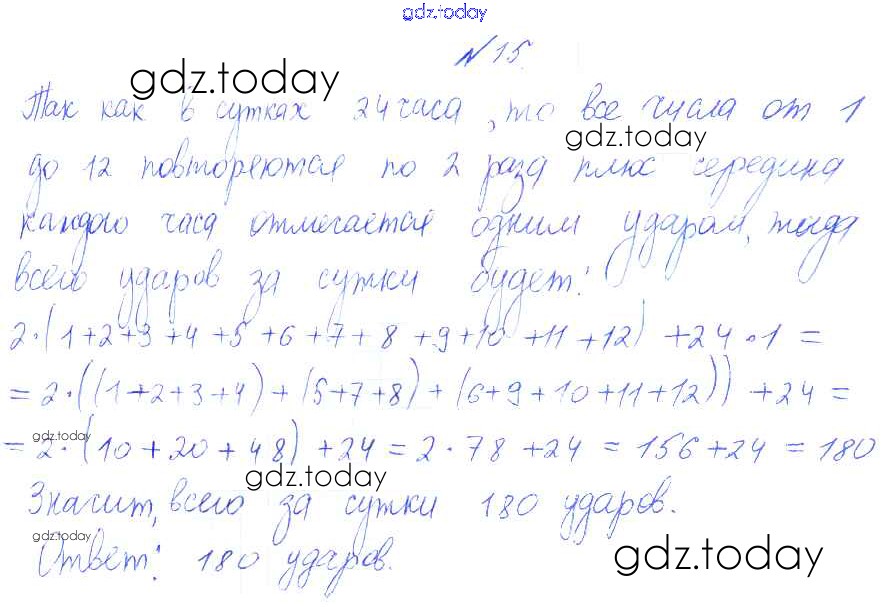 gdz.today
№15.
gdz.today
Так как в сутках 24 часа, то все числа от 1
gdz.today
до 12 повторяются по 2 раза плюс середина
каждого часа отмечается одним ударом, тогда
всего ударов за сутки будет:
2·(1+2+3+4+5+6+7+8+9+10+11+12)+24·1=
=2·((1+2+3+4)+(5+7+8)+(6+9+10+11+12))+24=
gdz.today
=2·(10+20+48)+24=2·78+24=156+24=180
gdz.today
Значит, всего за сутки 180 ударов.
gdz.today
Ответ: 180 ударов.
gdz.today